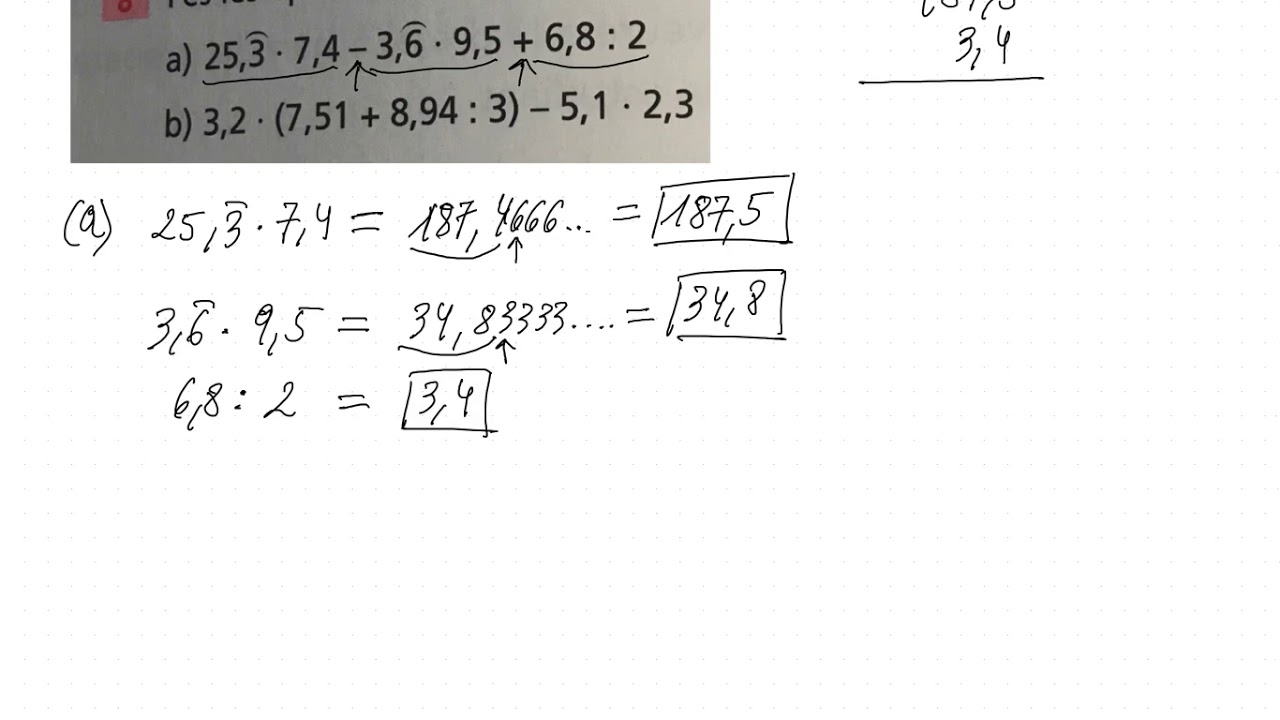 8
a) 25,3̅ · 7,4 − 3,6̅ · 9,5 + 6,8 : 2
b) 3,2 · (7,51 + 8,94 : 3) − 5,1 · 2,3
3,4
(a) 25,3̅ · 7,4 = 187,4666... = 187,5
3,6̅ · 9,5 = 34,83333.... = 34,8
6,8 : 2 = 3,4